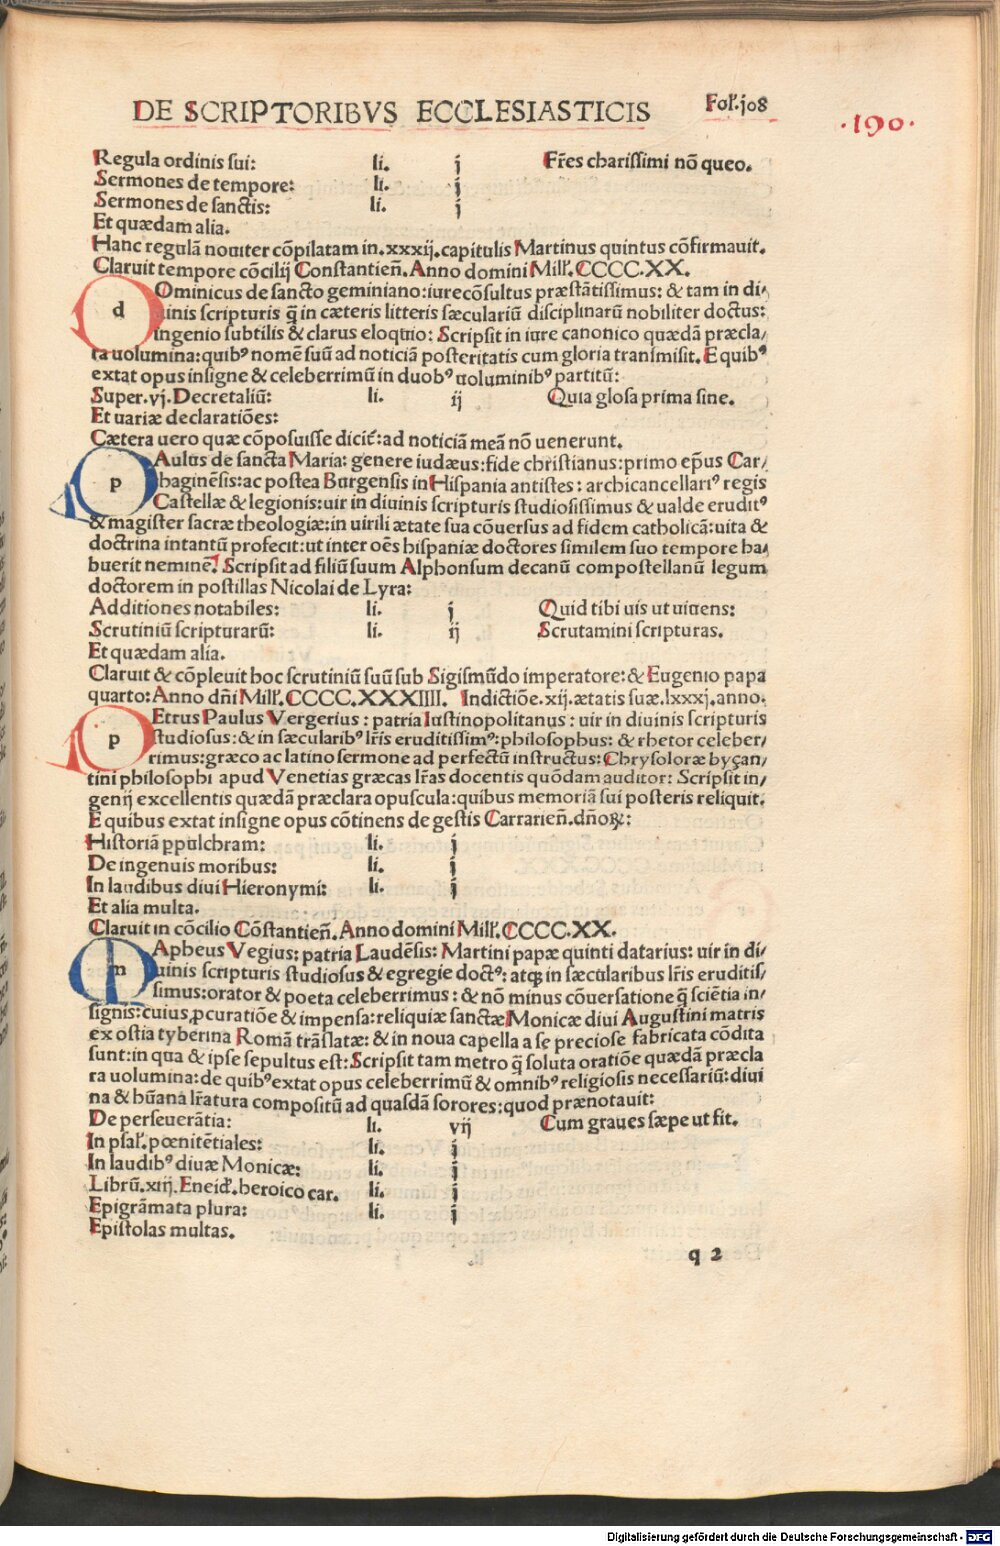 DE SCRIPTORIBVS ECCLESIASTICIS Fol.j08
.190.
Regula ordinis sui: li. j Fr̃es charissimi nõ queo.
Sermones de tempore: li. j
Sermones de sanctis: li. j
Et quædam alia.
Hanc regulã nouiter cõpilatam in.xxxij.capitulis Martinus quintus cõfirmauit.
Claruit tempore cõcilij Constantieñ. Anno domini Mill'. CCCC.XX.
dOminicus de sancto geminiano: iurecõsultus præstãtissimus: & tam in di/
uinis scripturis q̃ in cæteris litteris sæculariũ disciplinarũ nobiliter doctus:
ingenio subtilis & clarus eloquio: Scripsit in iure canonico quædã præcla/
ra uolumina: quibꝰ nomẽ suũ ad noticiã posteritatis cum gloria transmisit. E quibꝰ
extãt opus insigne & celeberrimũ in duobꝰ uoluminibꝰ partitũ:
Super.vj.Decretaliũ: li. ij Quia glosa prima sine.
Et uariæ declaratiões:
Cætera uero quæ cõposuisse dicit̃: ad noticiã meã nõ uenerunt.
pAulus de sancta Maria: genere iudæus: fide christianus: primo ep̃us Car/
thaginẽsis: ac postea Burgensis in Hispania antistes: archicancellariꝰ regis
Castellæ & legionis: uir in diuinis scripturis studiosissimus & ualde eruditꝰ
& magister sacræ theologiæ: in uirili ætate sua cõuersus ad fidem catholicã: uita &
doctrina intantũ profecit: ut inter oẽs hispaniæ doctores similem suo tempore ha/
buerit neminẽ! Scripsit ad filiũ suum Alphonsum decanũ compostellanũ legum
doctorem in postillas Nicolai de Lyra:
Additiones notabiles: li. j Quid tibi uis ut uiuens:
Scrutiniũ scripturarũ: li. ij Scrutamini scripturas.
Et quædam alia.
Claruit & cõpleuit hoc scrutiniũ suũ sub Sigismũdo imperatore: & Eugenio papa
quarto: Anno dñi Mill'. CCCC.XXXIIII. Indictiõe.xij.ætatis suæ.lxxxj.anno.
pEtrus Paulus Vergerius: patria Iustinopolitanus: uir in diuinis scripturis
studiosus: & in sæcularibꝰ lr̃is eruditissimꝰ: philosophus: & rhetor celeber/
rimus: græco ac latino sermone ad perfectũ instructus: Chrysoloræ byçan/
tini philosophi apud Venetias græcas lr̃as docentis quõdam auditor: Scripsit in/
genij excellentis quædã præclara opuscula: quibus memoriã sui posteris reliquit.
E quibus extat insigne opus cõtinens de gestis Carrarieñ. dñoꝝ:
Historiã ꝑpulchram: li. j
De ingenuis moribus: li. j
In laudibus diui Hieronymi: li. j
Et alia multa.
Claruit in cõcilio Cõstantieñ. Anno domini Mill'. CCCC.XX.
mApheus Vegius: patria Laudẽsis: Martini papæ quinti datarius: uir in di/
uinis scripturis studiosus & egregie doctꝰ: atqꝫ in sæcularibus lr̃is eruditis/
simus: orator & poeta celeberrimus: & nõ minus cõuersatione q̃ sciẽtia in/
signis: cuius ꝓcuratiõe & impensa: reliquiæ sanctæ Monicæ diui Augustini matris
ex ostia tyberina Romã trãslatæ: & in noua capella a se preciose fabricata cõdita
sunt: in qua & ipse sepultus est: Scripsit tam metro q̃ soluta oratiõe quædã præcla
ra uolumina: de quibꝰ extat opus celeberrimũ & omnibꝰ religiosis necessariũ: diui
na & hũana lr̃atura compositũ ad quasdã sorores: quod prænotauit:
De perseuerãtia: li. vij Cum graues sæpe ut fit.
In psal'. pœnitẽtiales: li. j
In laudibꝰ diuæ Monicæ: li. j
Librũ.xiij.Eneid'.heroico car. li. j
Epigrãmata plura: li. j
Epistolas multas.
q 2
Digitalisierung gefördert durch die Deutsche Forschungsgemeinschaft - DFG